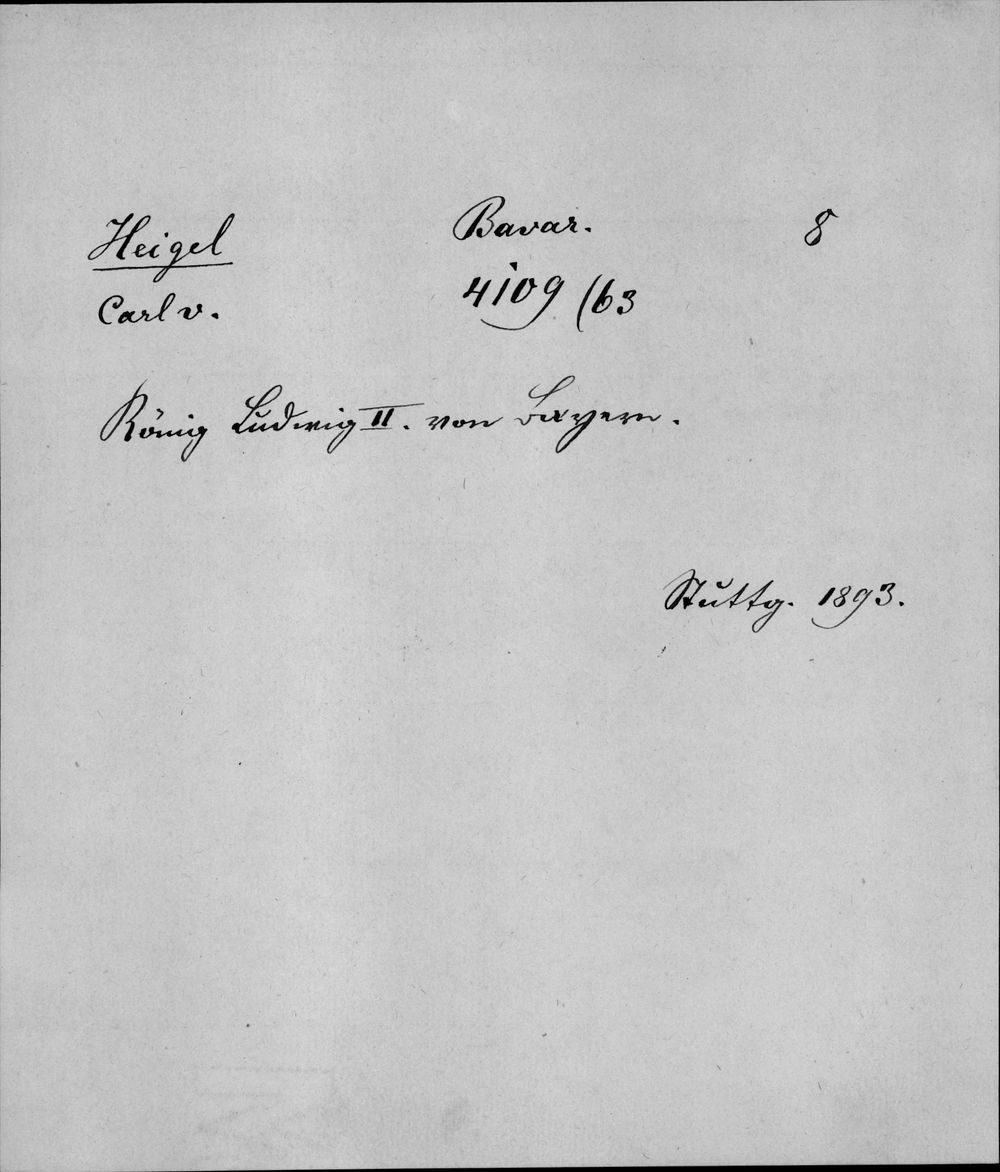 Heigel
Carl v.
Bavar.
4109 (63
8
König Ludwig II. von Bayern.
Stuttg. 1893.